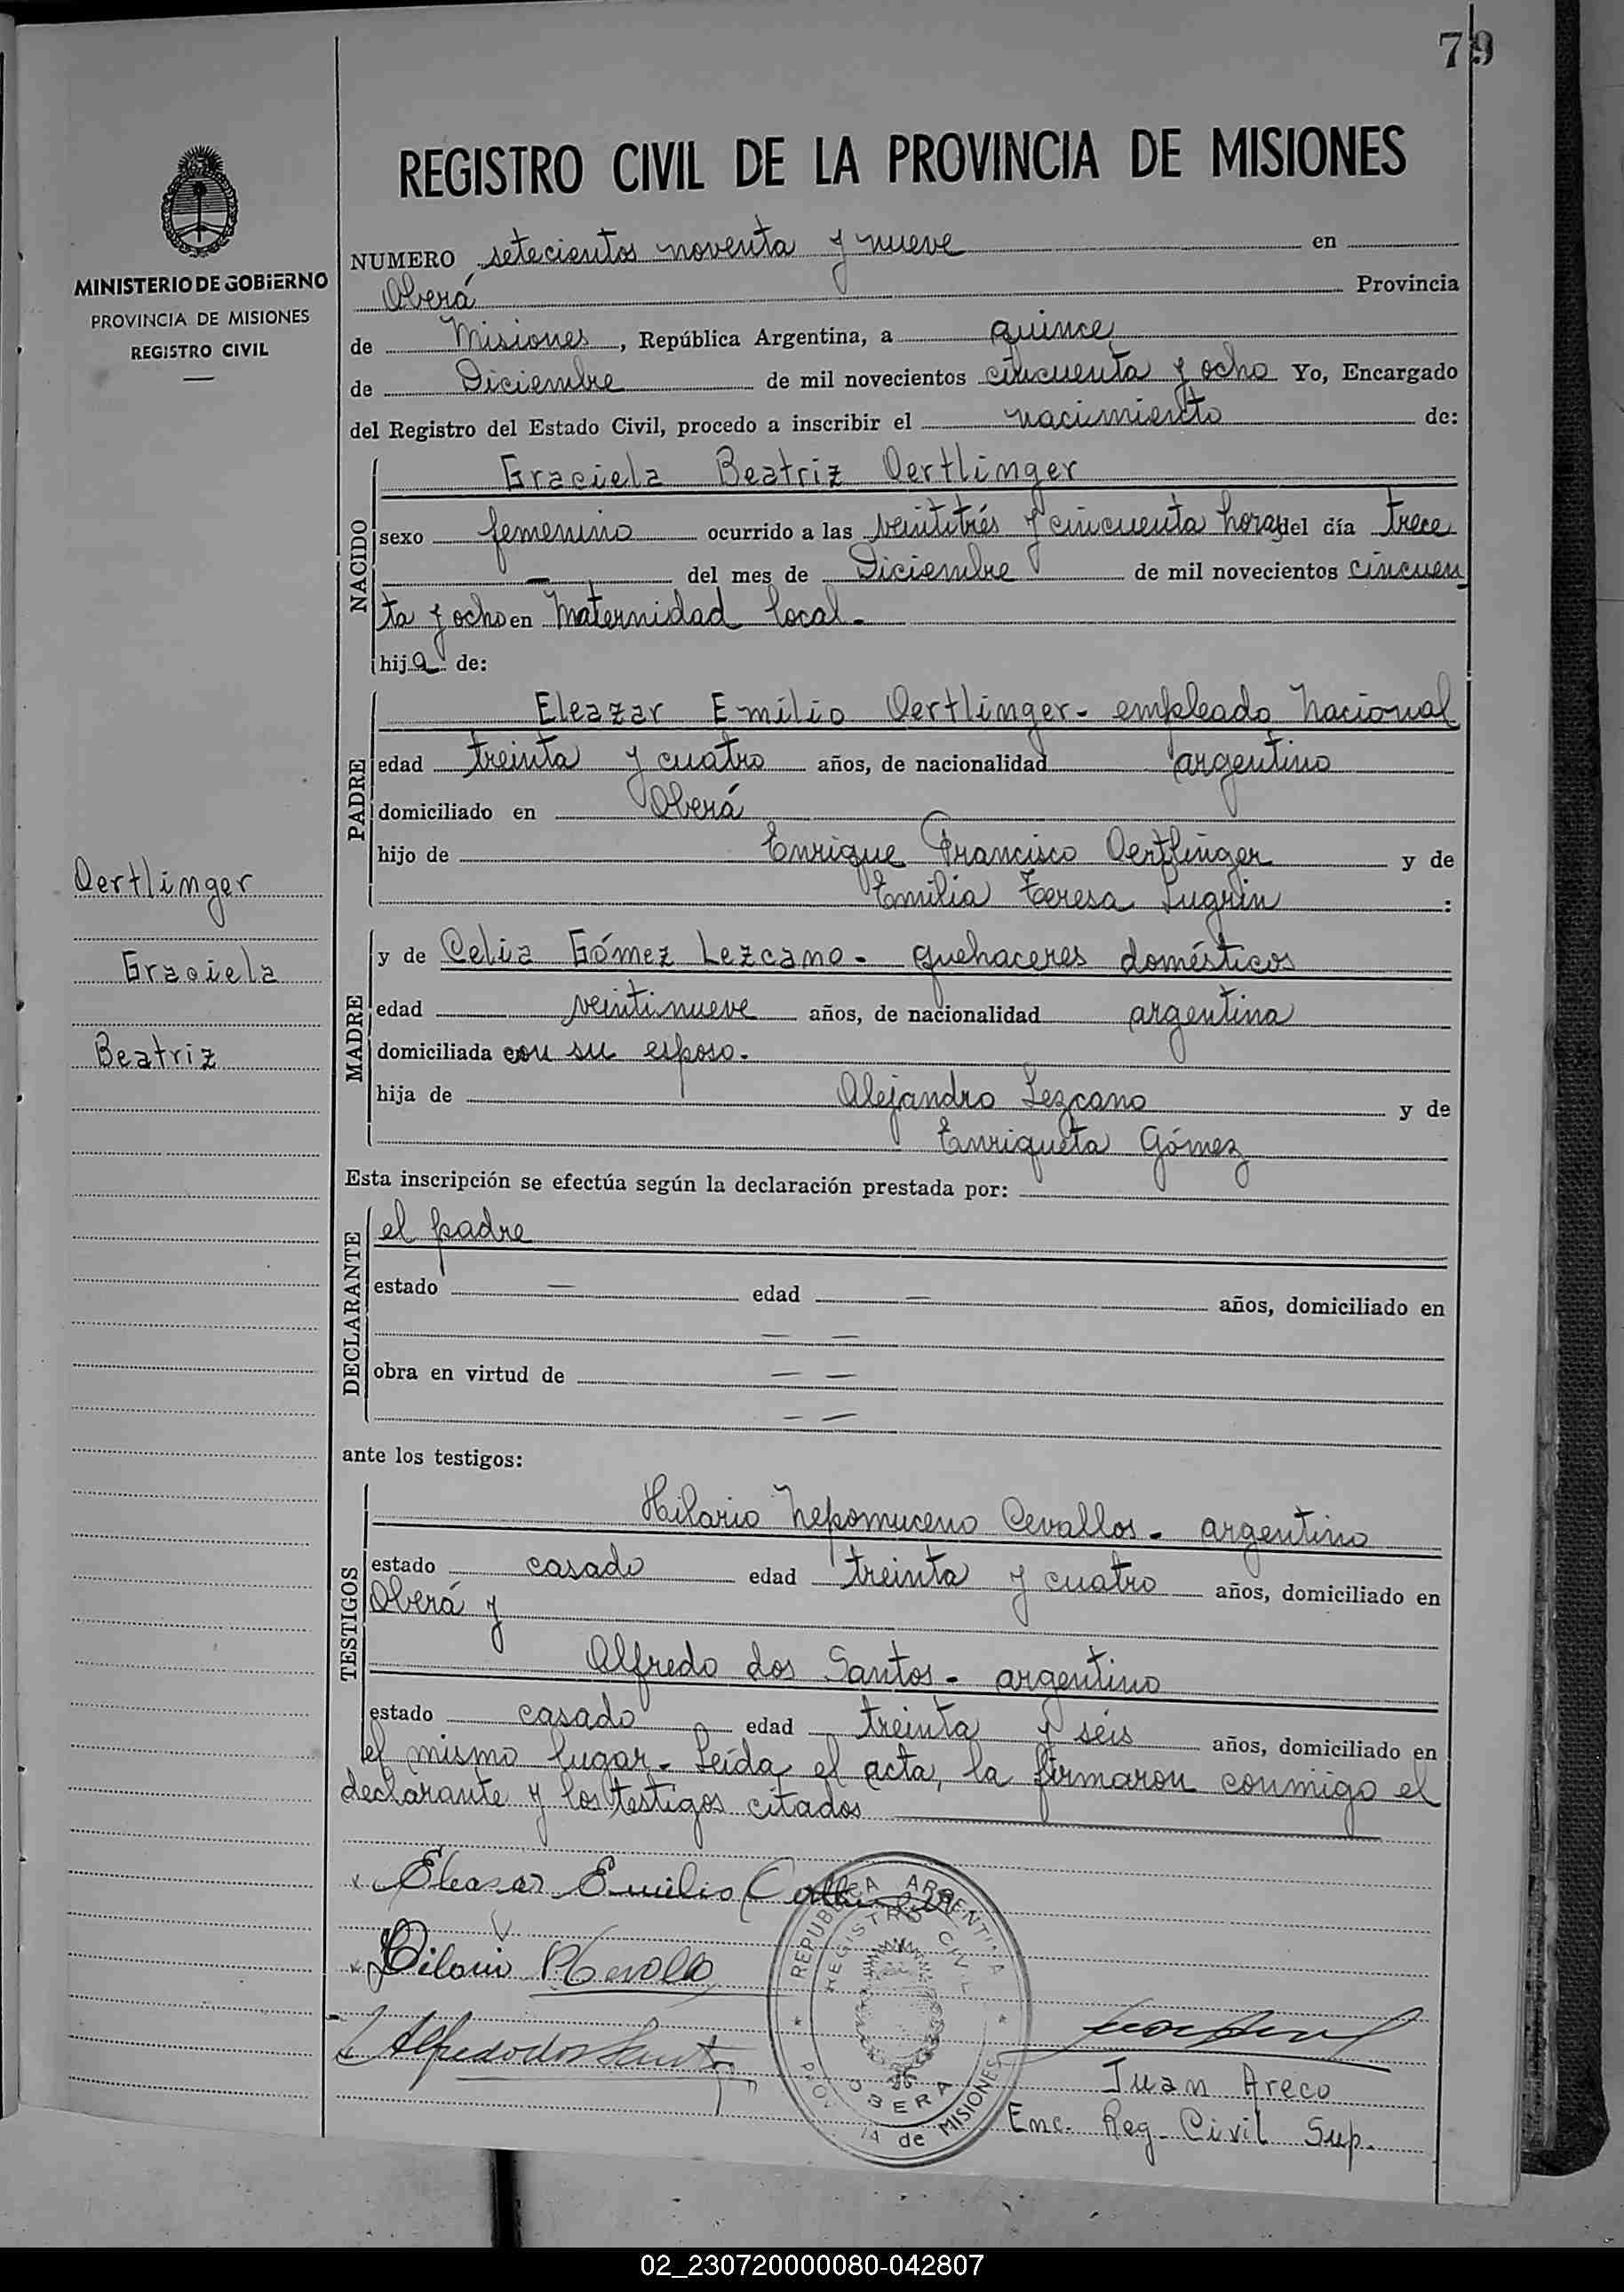 79
REGISTRO CIVIL DE LA PROVINCIA DE MISIONES
MINISTERIO DE GOBIERNO
PROVINCIA DE MISIONES
REGISTRO CIVIL
NUMERO setecientos noventa y nueve en
Oberá Provincia
de Misiones, República Argentina, a quince
de Diciembre de mil novecientos cincuenta y ocho Yo, Encargado
del Registro del Estado Civil, procedo a inscribir el nacimiento de:
NACIDO
Graciela Beatriz Oertlinger
sexo femenino ocurrido a las veintitrés y cincuenta horas del día trece
— del mes de Diciembre de mil novecientos cincuen
ta y ocho en Maternidad local.-
hija de:
PADRE
Eleazar Emilio Oertlinger- empleado Nacional
edad treinta y cuatro años, de nacionalidad argentino
domiciliado en Oberá
hijo de Enrique Francisco Oertlinger y de
Emilia Teresa Lugrin :
Oertlinger
Graciela
Beatriz
MADRE
y de Celia Gómez Lezcano- quehaceres domésticos
edad veintinueve años, de nacionalidad argentina
domiciliada con su esposo.
hija de Alejandro Lezcano y de
Enriqueta Gómez
Esta inscripción se efectúa según la declaración prestada por:
DECLARANTE
el padre
estado — edad — años, domiciliado en
— —
obra en virtud de — —
— —
ante los testigos:
TESTIGOS
Hilario Nepomuceno Cevallos- argentino
estado casado edad treinta y cuatro años, domiciliado en
Oberá y
Alfredo dos Santos- argentino
estado casado edad treinta y séis años, domiciliado en
el mismo lugar- Leída el acta, la firmaron conmigo el
declarante y los testigos citados
Eleasar Emilio Oertlinger
Hilario N Cevallos
Alfredo dos Santos
REPUBLICA ARGENTINA
REGISTRO CIVIL
OBERA
de MISIONES
Juan Areco
Enc. Reg. Civil Sup.
02_230720000080-042807